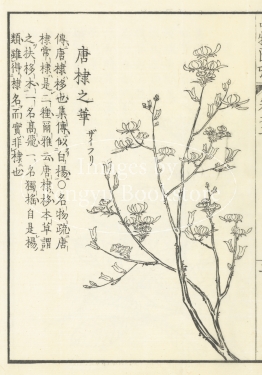 唐棣之華
ザイフリ
傳唐棣栘也集傳似白楊○名物疏唐
棣常棣是二種爾雅云唐棣栘本草謂
之扶栘木一名高飛一名獨搖自是楊
類雖得棣名而實非棣也
Images by
Bookstore